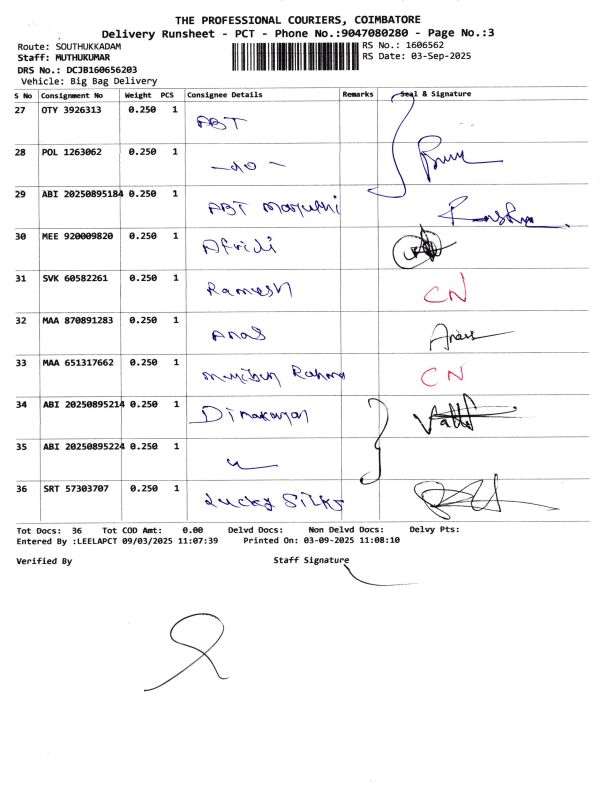 THE PROFESSIONAL COURIERS, COIMBATORE
Delivery Runsheet - PCT - Phone No.:9047080280 - Page No.:3
Route: SOUTHUKKADAM RS No.: 1606562
Staff: MUTHUKUMAR RS Date: 03-Sep-2025
DRS No.: DCJB160656203
Vehicle: Big Bag Delivery
S No Consignment No Weight PCS Consignee Details Remarks Seal & Signature
27 OTY 3926313 0.250 1 ABT
28 POL 1263062 0.250 1 -do-
29 ABI 20250895184 0.250 1 ABT Maruthi
30 MEE 920009820 0.250 1 Afridi
31 SVK 60582261 0.250 1 Ramesh CN
32 MAA 870891283 0.250 1 Anas Anas
33 MAA 651317662 0.250 1 Rahma CN
34 ABI 20250895214 0.250 1 Dinakaran
35 ABI 20250895224 0.250 1
36 SRT 57303707 0.250 1 Lucky Silks
Tot Docs: 36 Tot COD Amt: 0.00 Delvd Docs: Non Delvd Docs: Delvy Pts:
Entered By :LEELAPCT 09/03/2025 11:07:39 Printed On: 03-09-2025 11:08:10
Verified By Staff Signature